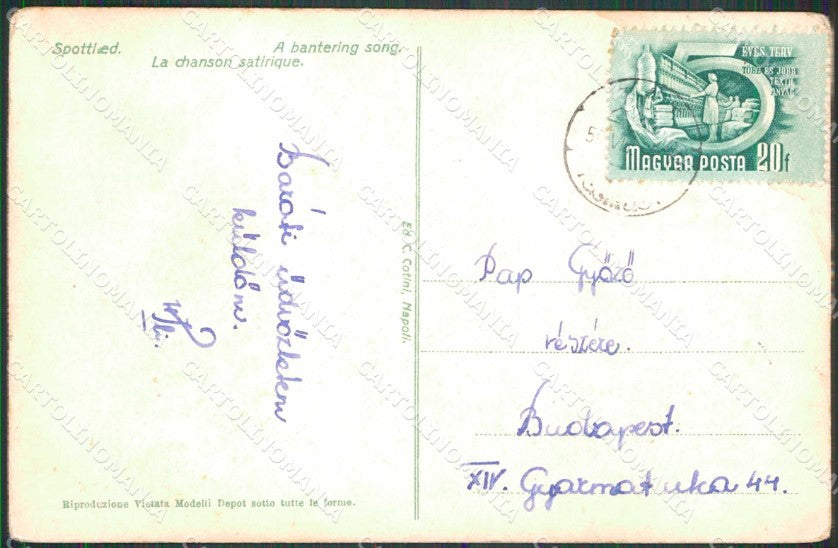 Spottlæd. A bantering song.
La chanson satirique.
Baráti üdvözletem
küldöm.
Ed. C. Cotini, Napoli.
Riproduzione Vietata Modelli Depot sotto tutte le forme.
5 ÉVES TERV
TÖBB ÉS JOBB
TEXTIL
ANYAG
MAGYAR POSTA 20f
Pap Győző
részére.
Budapest.
XIV. Gyarmat utca 44.
CARTOLINOMANIA